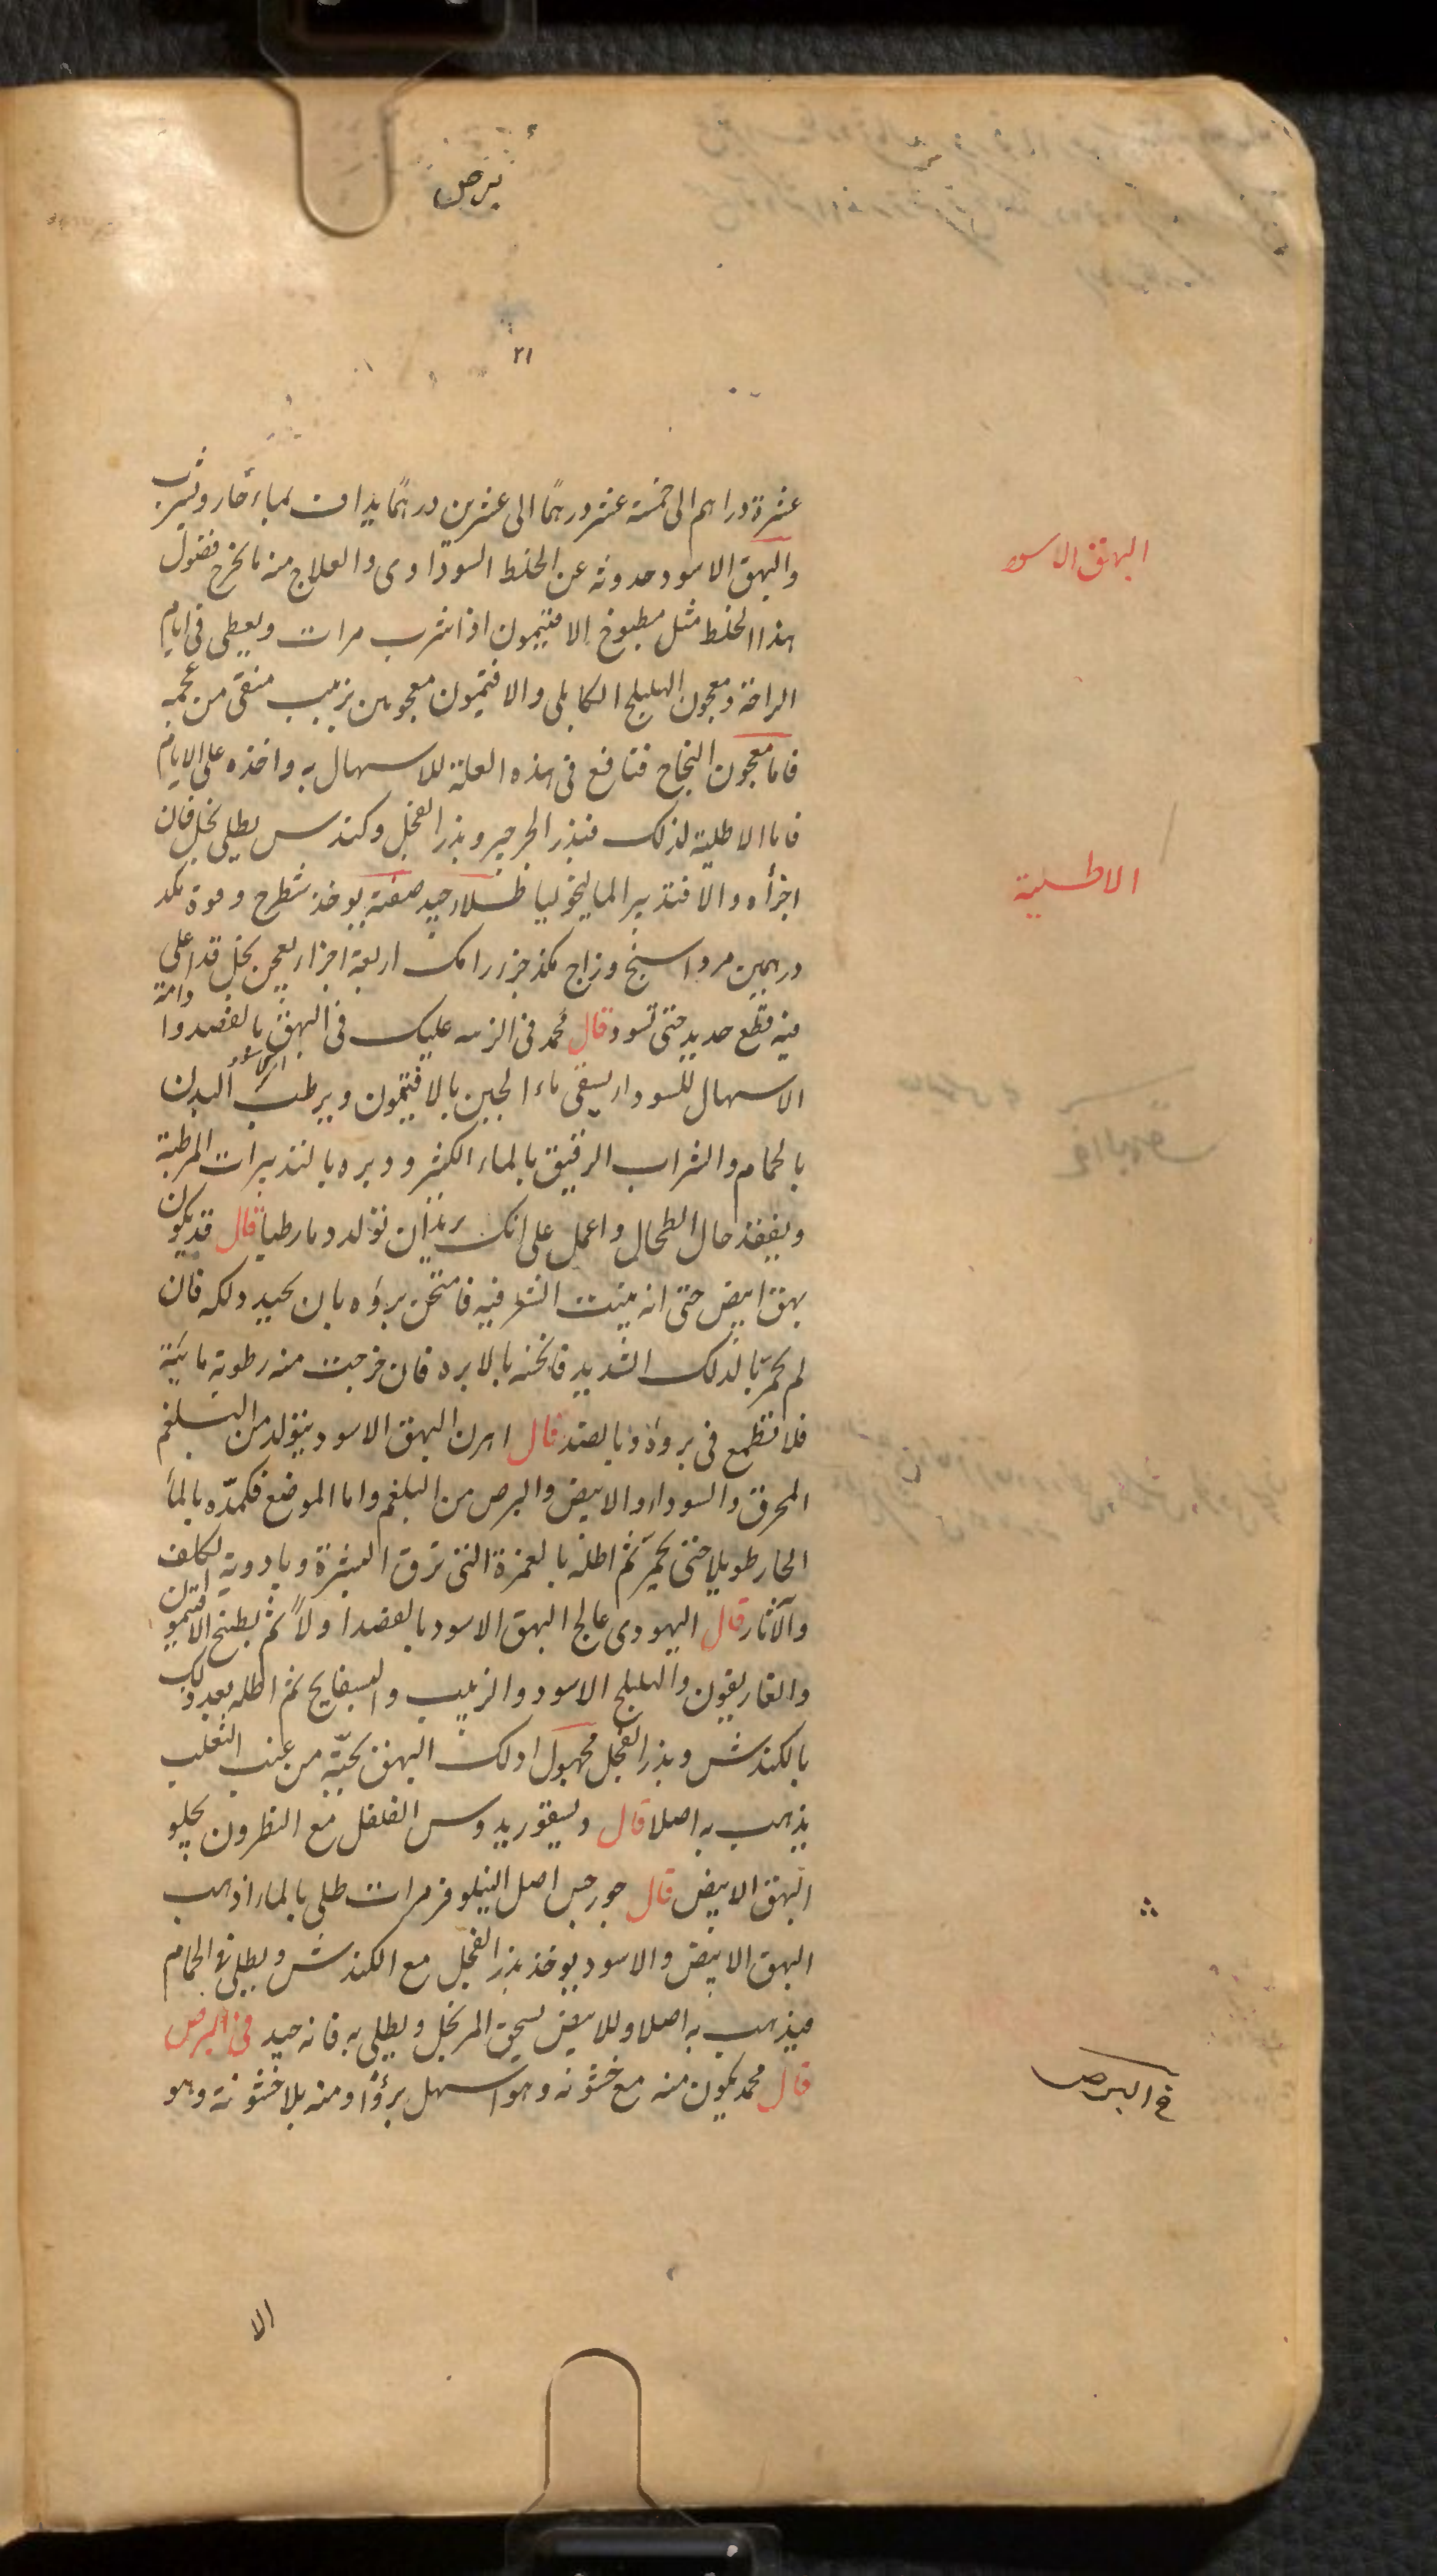 برص
۲۱
عشرة دراهم الى خمسة عشر درهمًا الى عشرين درهمًا يداف بماء حار ويشرب
البهق الاسود
والبهق الاسود حدوثه عن الخلط السوداوى والعلاج منه ما يخرج فضول
هذا الخلط مثل مطبوخ الافتيمون اذا شرب مرات ويعطى فى ايام
الراحة معجون الهليلج الكابلى والافتيمون معجونين بزبيب منقى من عجمه
فاما معجون النجاح فنافع فى هذه العلة للاسهال به واخذه على الايام
فاما الاطلية لذلك فبذر الجرجير وبذر الفجل وكندس يطلى بخل فان
الاطلية
اجزأه والا فتدبير الماليخوليا طلاء جيد صفته يوخذ شطرج وفوة مكد
درهمين مرداسنج وزاج مكد جزء رامك اربعة اجزاء يعجن بخل قد اغلى
فيه قطع حديد حتى تسود قال محمد فى الزمه عليك فى البهق بالفصد وا
دامة
الاسود
الاسهال للسوداء يسقى ماء الجبن بالافتيمون ويرطب البدن
بالحمام والشراب الرقيق بالماء الكثير ودبره بالتدبيرات المرطبة
ويفقد حال الطحال واعمل على انك تريد ان تولد دما رطبا قال قد يكون
بهق ابيض حتى انه ينبت الشعر فيه فامتحن برؤه بان تحيد دلكه فان
لم يحمر بالدلك الشديد فانخنه بالابره فان خرجت منه رطوبة مائية
فلا تطمع فى برؤه وبالضد قال اهرن البهق الاسود يتولد من البلغم
المحرق والسوداء والابيض والبرص من البلغم واما الموضع فكمده بالماء
الحار طويلا حتى يحمر ثم اطله بالغمزة التى ترق البشرة وبادوية الكلف
والآثار قال اليهودى عالج البهق الاسود بالفصد اولاً ثم بطبخ الافتيمون
والغاريقون والهليلج الاسود والزبيب والبسفايج ثم اطله بعد ذلك
بالكندش وبذر الفجل مجهول ادلك البهق بحبة من عنب الثعلب
يذهب به اصلا قال ديسقوريدوس الفلفل مع النطرون يجلو
البهق الابيض قال جورجس اصل النيلوفر مرات طلى بالماء اذهب
البهق الابيض والاسود يوخذ بذر الفجل مع الكندش ويطلى فى الحمام
فيذهب به اصلا وللابيض يسحق المر بخل ويطلى به فانه جيد فى البرص
قال محمد يكون منه مع خشونه وهو اسهل برؤًا ومنه بلا خشونة وهو
فى البرص
الا